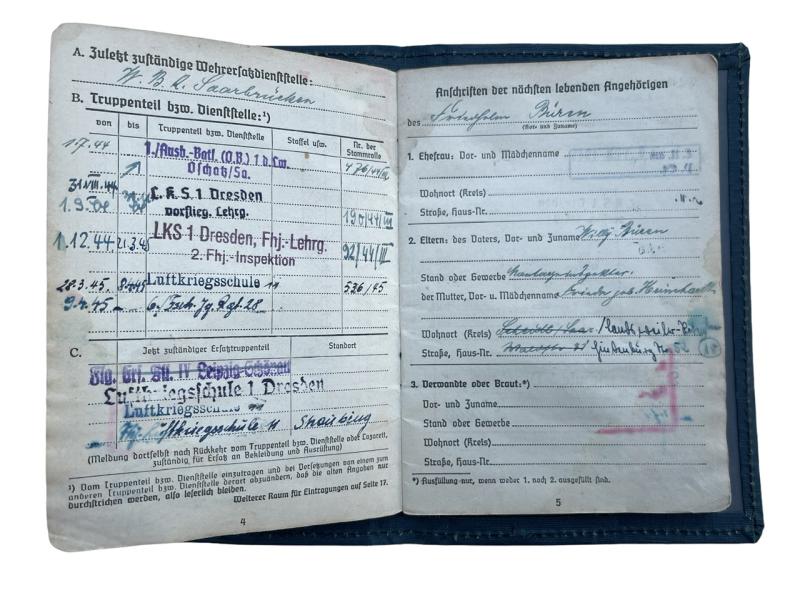 A. Zuletzt zuständige Wehrersatzdienststelle:
W. B. K. Saarbrücken
B. Truppenteil bzw. Dienststelle:¹)
von bis Truppenteil bzw. Dienststelle Staffel usw. Nr. der Stammrolle
1.7.44 1./Ausb.-Batl. (O.B.) 1 d. Lw.
Oschatz/Sa.
31.VIII.44 L.K.S. 1 Dresden
vorflieg. Lehrg. 190/44/III
1.12.44 21.3.45 LKS 1 Dresden, Fhj-Lehrg. 92/44/III
2. Fhj.-Inspektion
28.3.45. Luftkriegsschule 11 536/45
9.4.45 6. Fsch. Jg. Rgt. 28
C. Jetzt zuständiger Ersatztruppenteil Standort
Leipzig-Schönau
Luftkriegsschule 1 Dresden
Luftkriegsschule
Luftkriegsschule 11 Straubing
(Meldung dortselbst nach Rückkehr vom Truppenteil bzw. Dienststelle oder Lazarett,
zuständig für Ersatz an Bekleidung und Ausrüstung)
¹) Vom Truppenteil bzw. Dienststelle einzutragen und bei Versetzungen von einem zum
anderen Truppenteil bzw. Dienststelle derart abzuändern, daß die alten Angaben nur
durchstrichen werden, also leserlich bleiben.
Weiterer Raum für Eintragungen auf Seite 17.
4
Anschriften der nächsten lebenden Angehörigen
des Friedhelm Büren
(Vor- und Zuname)
1. Ehefrau: Vor- und Mädchenname
Wohnort (Kreis)
Straße, Haus-Nr.
2. Eltern: des Vaters, Vor- und Zuname Willy Büren
Stand oder Gewerbe
der Mutter, Vor- u. Mädchenname Frieda geb.
Wohnort (Kreis) /Saar/
Straße, Haus-Nr.
3. Verwandte oder Braut:*)
Vor- und Zuname
Stand oder Gewerbe
Wohnort (Kreis)
Straße, Haus-Nr.
*) Ausfüllung nur, wenn weder 1. noch 2. ausgefüllt sind.
5